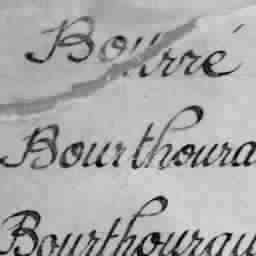 Bourré
Bourthoura
Bourthourau